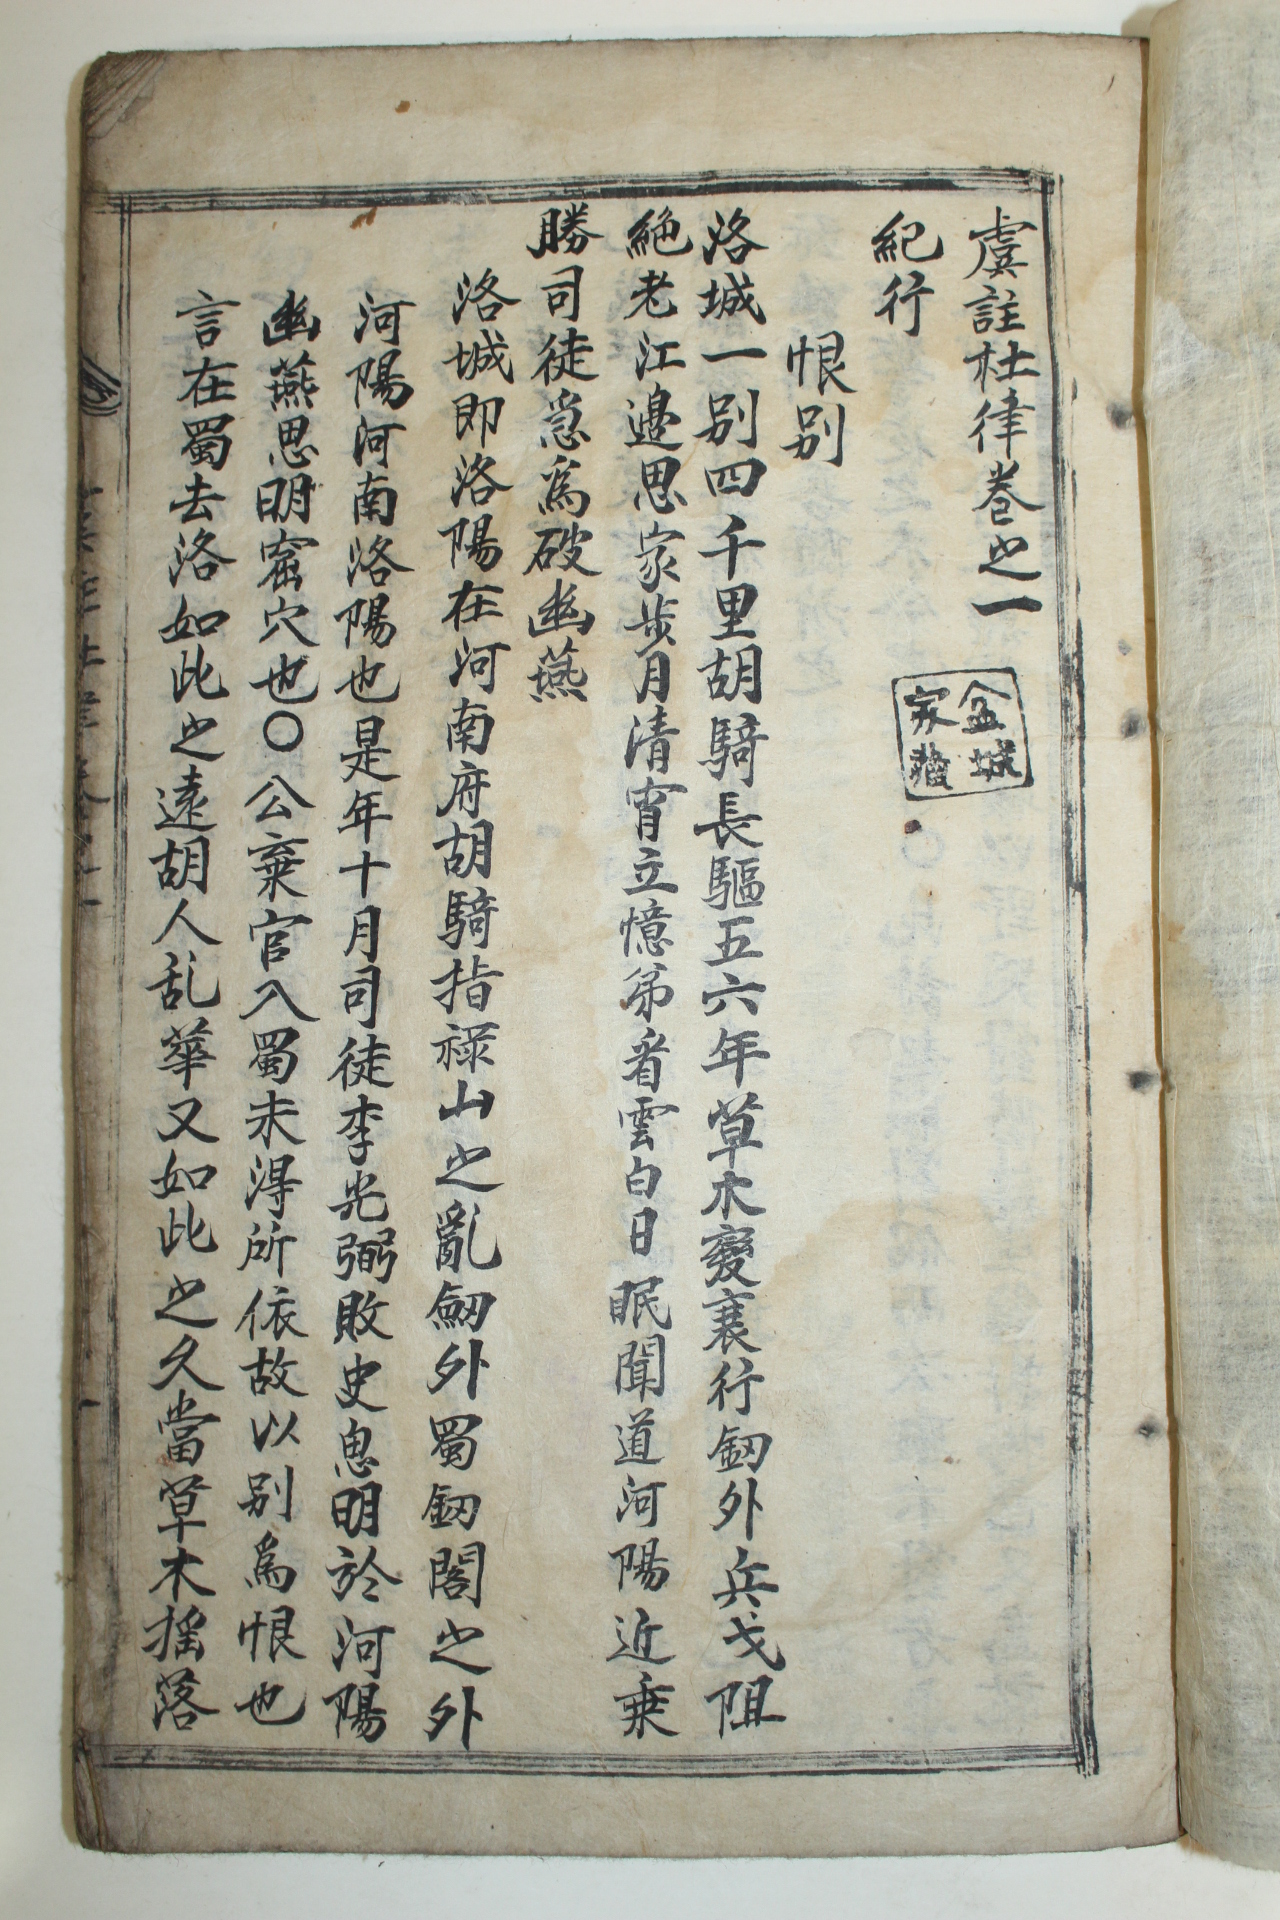 虞註杜律卷之一
金城
家藏
紀行
恨別
洛城一別四千里胡騎長驅五六年草木變衰行劒外兵戈阻
絶老江邊思家步月清宵立憶弟看雲白日眠聞道河陽近乗
勝司徒急為破幽燕
洛城即洛陽在河南府胡騎指祿山之亂劒外蜀劒閣之外
河陽河南洛陽也是年十月司徒李光弼敗史思明於河陽
幽燕思明窟穴也〇公棄官入蜀未得所依故以別為恨也
言在蜀去洛如此之遠胡人乱華又如此之久當草木揺落